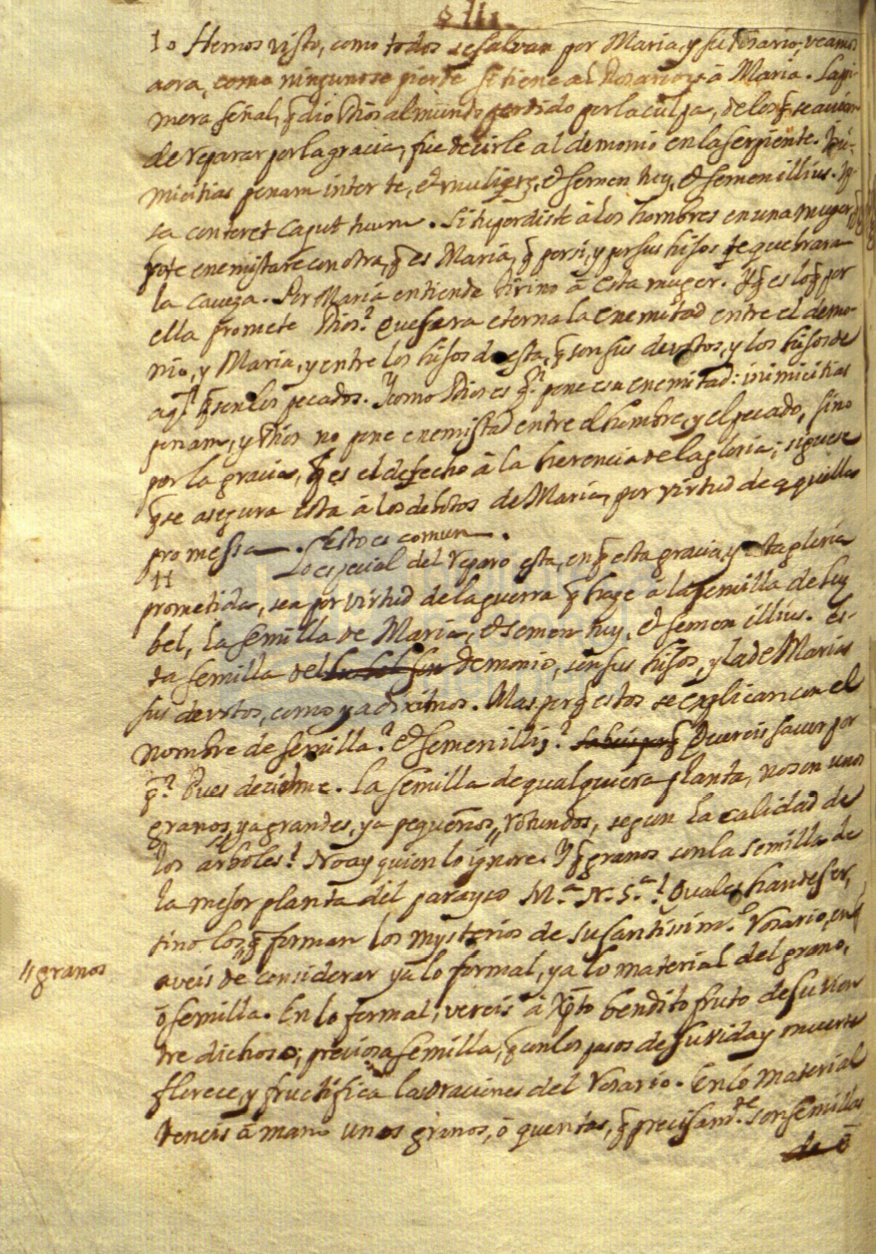 § III.
10 Hemos visto, como todos se salvan por Maria, y su Rosario; veamos
aora, como ninguno se pierde si tiene al Rosario, y à Maria. La pri-
mera señal, q̃ dio Dios al mundo perdido por la culpa, de los q̃ se avian
de reparar por la gracia, fue decirle al demonio en la serpiente. Ini-
micitias ponam inter te, et mulierẽ, et semen tuũ, et semen illius. Ip-
sa conteret caput tuum. Si tu perdiste à los hombres en una muger,
yo te enemistare con otra, q̃ es Maria, q̃ por si, y por sus hijos te quebrara
la caveza. Por Maria entiende a esta muger. Y q̃ es lo q̃ por
ella promete Dios? Que sera eterna la enemistad entre el demo-
nio, y Maria, y entre los hijos de esta, q̃ son sus devotos, y los hijos de
aq.l q̃ son los pecados. Y como Dios es q.n pone esa enemistad: inimicitias
ponam, y Dios no pone enemistad entre el hombre, y el pecado, sino
por la gracia, q̃ es el derecho à la herencia de la gloria; siguese
q̃ se asegura esta à los devotos de Maria, por virtud de aquella
promessa. Esto es comun.
11 Lo especial del reparo esta, en q̃ esta gracia, y esta gloria
prometida, sea por virtud de la guerra q̃ haze à la semilla de luz
bel, la semilla de Maria, et semen tuũ, et semen illius. Es-
ta semilla del demonio, son sus hijos, y la de Maria
sus devotos, como ya diximos. Mas porq̃ estos se explican con el
nombre de semilla? et semen illiꝰ? Quereis saver por
q̃? Pues decidme. La semilla de qualquiera planta, no son unos
granos, ya grandes, ya pequeños, rotundos, segun la calidad de
los arboles? No ay quien lo ignore. Y q̃ granos son la semilla de
la mejor planta del parayso M.ª N. S.ª? Quales han de ser,
sino los q̃ forman los mysterios de su santissim.º Rosario, en q̃
aveis de considerar ya lo formal, ya lo material del grano,
"granos
ò semilla. En lo formal, vereis à Xp̃to bendito fruto de su vien
tre dichoso, preciosa semilla, q̃ con los pasos de su vida y muerte
florece, y fructifica las oraciones del Rosario. En lo material
teneis à mano unos granos, ò quentas, q̃ precisam.te son semillas